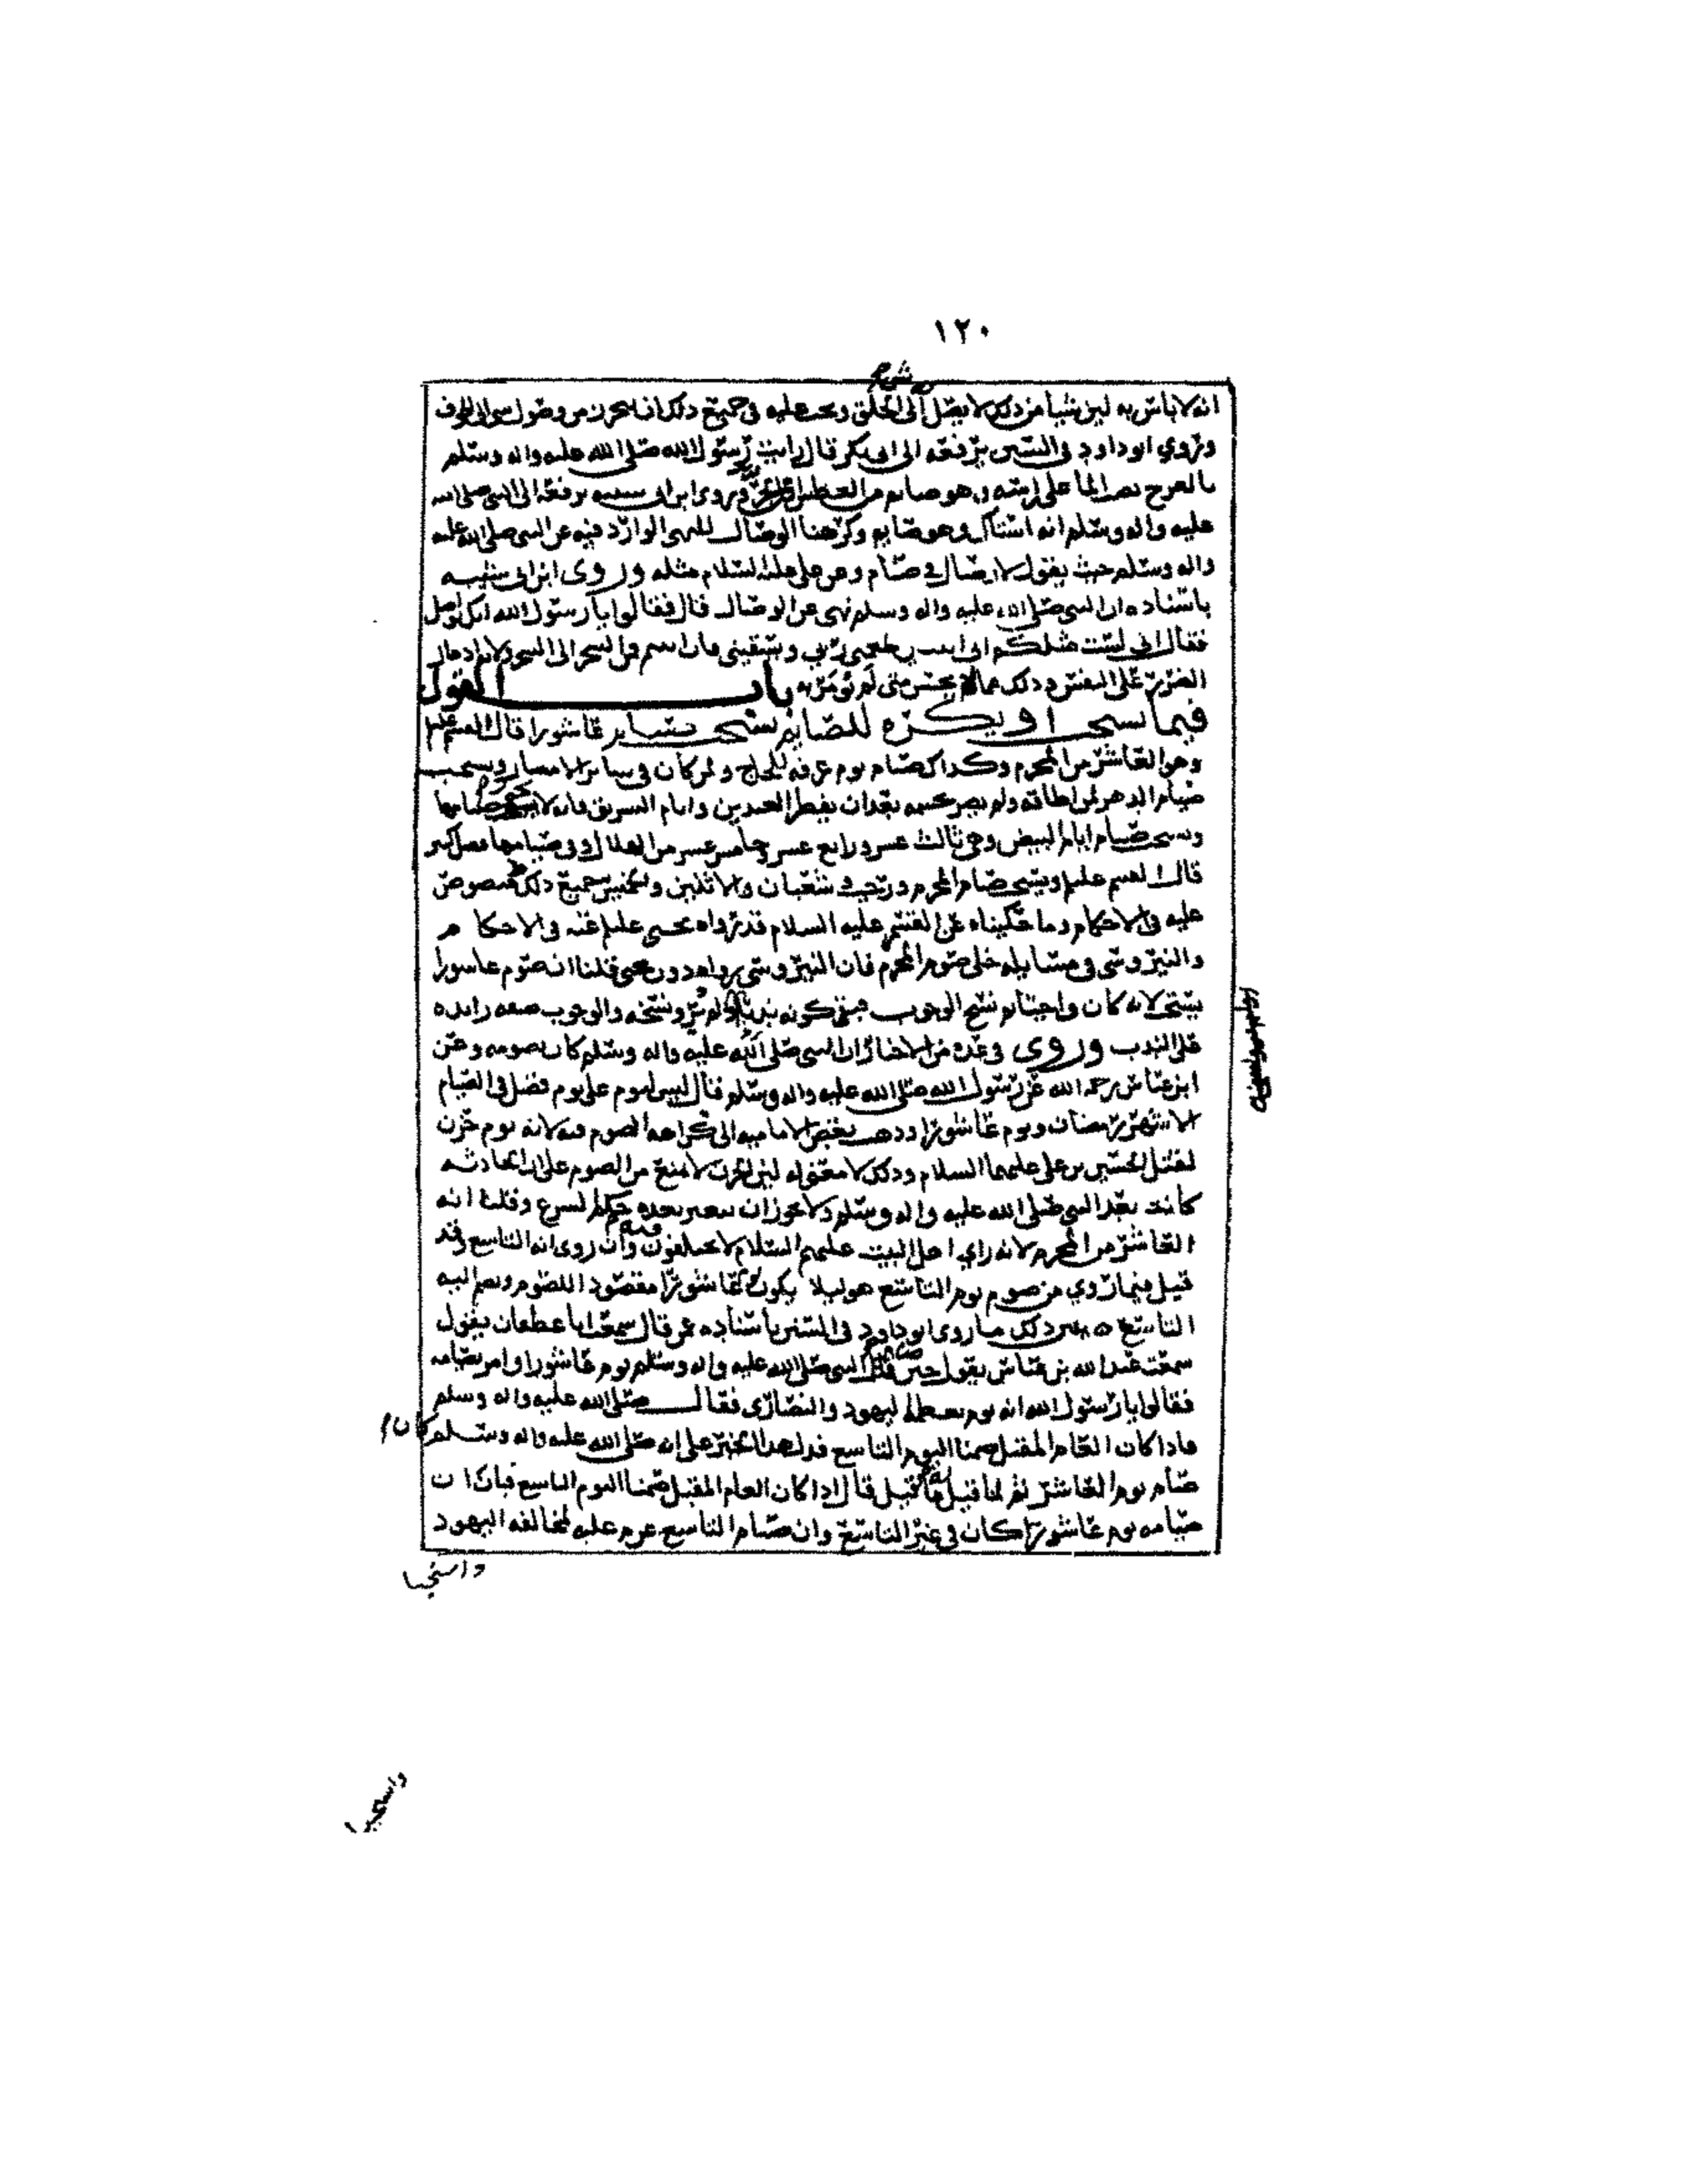 ١٢٠
انه لا باس به ليس شيا من ذلك لا يصل الى الحلق ويجب عليه في جميع ذلك ان يتحرز من وصول شي الى الجوف
وروي ابو داود في السنن يرفعه الى ابي بكر قال رايت رسول الله صلى الله عليه واله وسلم
بالعرج يصب الما على راسه وهو صايم من العطش او الحر وروى ابن ابي شيبه يرفعه الى النبي صلى الله
عليه واله وسلم انه استاك وهو صايم وكرهنا الوصال للنهي الوارد فيه عن النبي صلى الله عليه
واله وسلم حيث يقول لا وصال في صيام وعن علي عليه السلام مثله وروى ابن ابي شيبه
باسناده ان النبي صلى الله عليه واله وسلم نهى عن الوصال قال فقالوا يا رسول الله انك تواصل
فقال اني لست مثلكم اني ابيت يطعمني ربي ويسقيني من السحر الى السحر ولانه ادخال
الضرر على النفس وذلك مما لا يحسن متى لم نومر به باب القول
فيما يستحب او يكره للصايم يستحب صيام يوم عاشورا قال القسم عليلم
وهو العاشر من المحرم وكذلك صيام يوم عرفه للحاج ولمن كان في ساير الامصار ويستحب
صيام الدهر لمن اطاقه ولم يضر بجسمه بعد ان يفطر العيدين وايام التشريق فانه لا يجوز صيامها
ويستحب صيام ايام البيض وهي ثالث عشر ورابع عشر وخامس عشر من الهلال وفي صيامها فضل كبير
قال القسم عليلم ويستحب صيام المحرم ورجب وشعبان والاثنين والخميس جميع ذلك منصوص
عليه في الاحكام وما حكيناه عن القسم عليه السلام قد رواه يحيى عليلم عنه في الاحكام
والنيروسي في مسايله خلى صوم المحرم فان النيروسي يرواه دون يحيى قلنا ان صوم عاشورا
يستحب لانه كان واجبا ثم نسخ الوجوب فبقي كونه ندبا ولم يرو نسخه والوجوب صفه زايده
على الندب وروى في عده من الاخبار ان النبي صلى الله عليه واله وسلم كان يصومه وعن
ابن عباس رحمه الله عن رسول الله صلى الله عليه واله وسلم قال ليس ليوم على يوم فضل في الصيام
الا شهر رمضان ويوم عاشورا وذهب بعض الاماميه الى كراهه الصوم فيه لانه يوم حزن
لقتل الحسين بن علي عليهما السلام وذلك لا معنى له لان الحزن لا يمنع من الصوم على ان الحادثه
كانت بعد النبي صلى الله عليه واله وسلم ولا يجوز ان يتغير بعده حكم الشرع وقلنا انه
العاشر من المحرم لانه راي اهل البيت عليهم السلام لا يختلفون فيه وان روى انه التاسع وقد
قيل فيما روي من صوم يوم التاسع هو ليلا يكون يوم عاشورا مقصودا للصوم ويضم اليه
التاسع يفسر ذلك ما روى ابو داود في السنن باسناده عن قال سمعت ابا غطفان يقول
سمعت عبد الله بن عباس يقول حين صام النبي صلى الله عليه واله وسلم يوم عاشورا وامر بصيامه
فقالوا يا رسول الله انه يوم يعظمه اليهود والنصارى فقال صلى الله عليه واله وسلم
فاذا كان العام المقبل صمنا اليوم التاسع فدل هذا الخبر على انه صلى الله عليه واله وسلم كان
صام يوم العاشر ثم لما قيل له ما قيل قال اذا كان العام المقبل صمنا اليوم التاسع فبان ان
صيامه يوم عاشورا كان في غير التاسع وان صيام التاسع عزم عليه لمخالفه اليهود
واستحبا